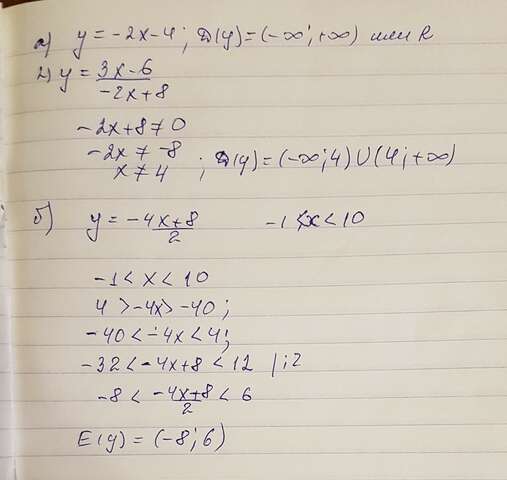 а) y = -2x-4; D(y)=(-∞;+∞) или R
2) y = 3x-6 / -2x+8
-2x+8≠0
-2x ≠ -8
x≠4 ; D(y)=(-∞;4)∪(4;+∞)
б) y = -4x+8 / 2 -1<x<10
-1<x<10
4 >-4x> -40;
-40<-4x<4;
-32<-4x+8<12 |:2
-8 < -4x+8 / 2 < 6
E(y) = (-8;6)